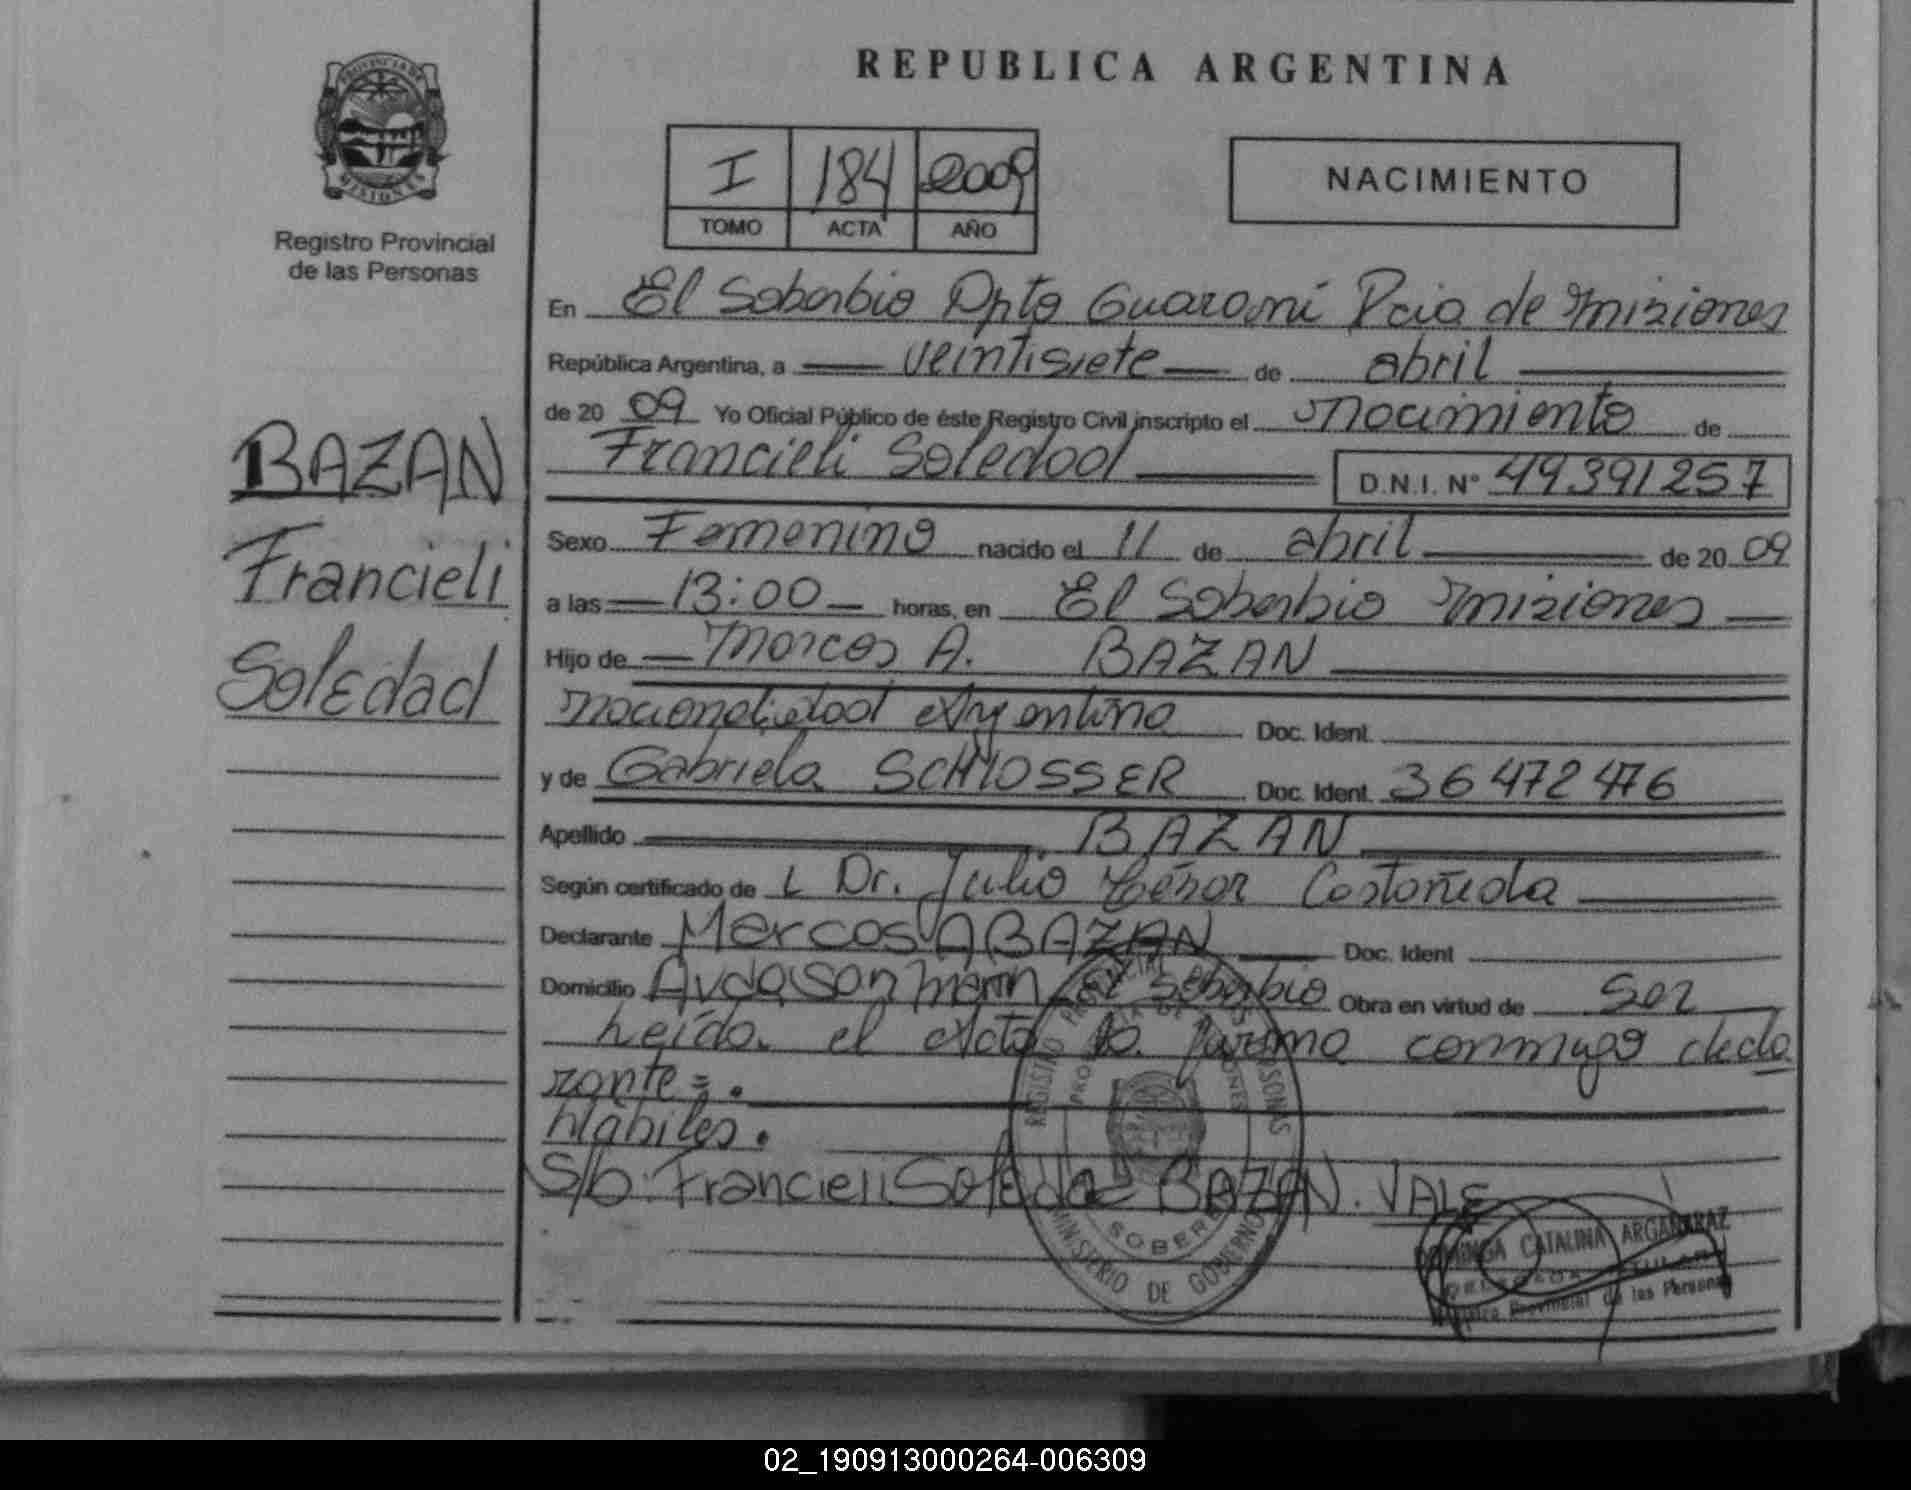 REPUBLICA ARGENTINA
PROVINCIA DE
MISIONES
Registro Provincial
de las Personas
I 184 2009
TOMO ACTA AÑO
NACIMIENTO
BAZAN
Francieli
Soledad
En El Soberbio Dpto Guaraní Pcia de Misiones
República Argentina, a veintisiete de abril
de 2009 Yo Oficial Público de éste Registro Civil inscripto el Nacimiento de
Francieli Soledad D.N.I. N° 49391257
Sexo Femenino nacido el 11 de abril de 2009
a las 13:00 horas, en El Soberbio Misiones
Hijo de Marcos A. BAZAN
nacionalidad Argentina Doc. Ident.
y de Gabriela SCHLOSSER Doc. Ident. 36472476
Apellido BAZAN
Según certificado de L Dr. Julio César Castañeda
Declarante Marcos A BAZAN Doc. Ident
Domicilio Avda San Martin El Soberbio Obra en virtud de Ser
Leída el Acta la firma conmigo decla
rante=.
Hábiles.
S/b: Francieli Soledad BAZAN. VALE
REGISTRO PROVINCIAL DE LAS PERSONAS
MINISTERIO DE GOBIERNO
DOMINGA CATALINA ARGAÑARAZ
Registro Provincial de las Personas
02_190913000264-006309